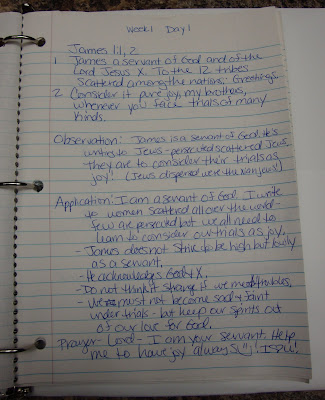 Week 1 Day 1
James 1:1, 2
1 James a servant of God and of the
Lord Jesus X. To the 12 tribes
scattered among the nations: Greetings.
2 Consider it pure joy, my brothers,
whenever you face trials of many
kinds.
Observation: James is a servant of God. He's
writing to Jews - persecuted scattered Jews.
They are to consider their trials as
joy! (Jews dispersed were the
Application: I am a servant of God. I write
to women scattered all over the world -
few are persecuted but we all need to
learn to consider our trials as joy.
- James does not strive to be high but lowly
as a servant.
- He acknowledges God & X.
- Do not think it strange if we meet troubles.
- We must not become sad & faint
under trials - but keep our spirits out
of our love for God.
Prayer - Lord - I am your servant. Help
me to have joy always